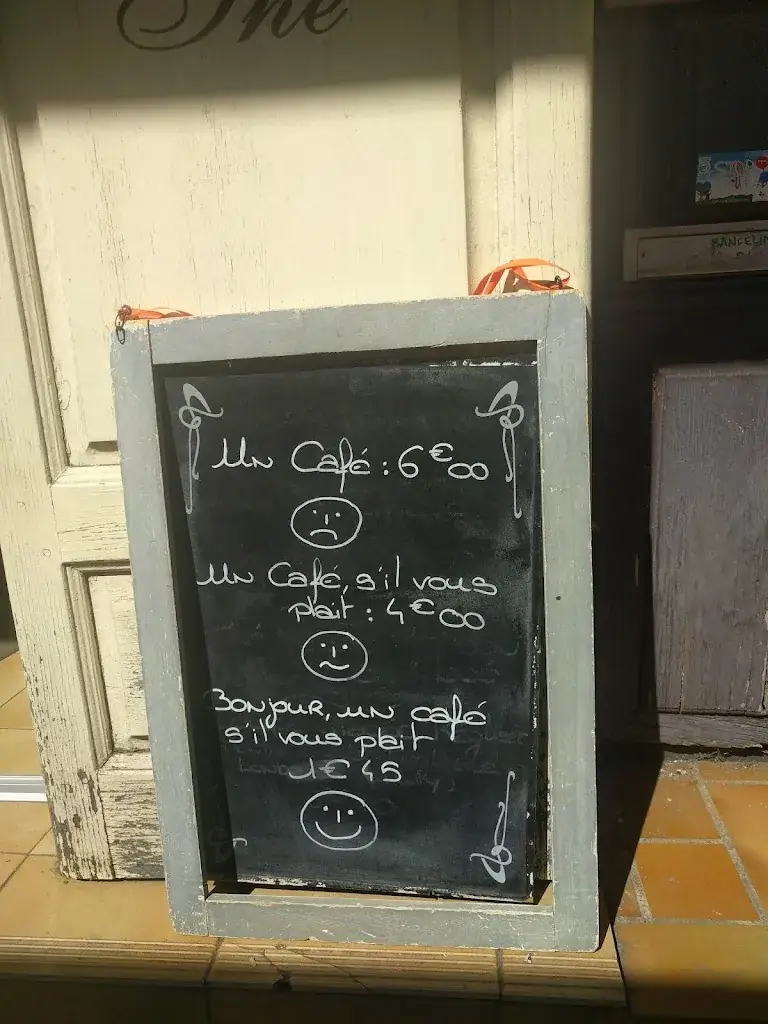 The
Un Café : 6€00
Un Café, s'il vous
plait : 4€00
Bonjour, un café
s'il vous plait
1€45